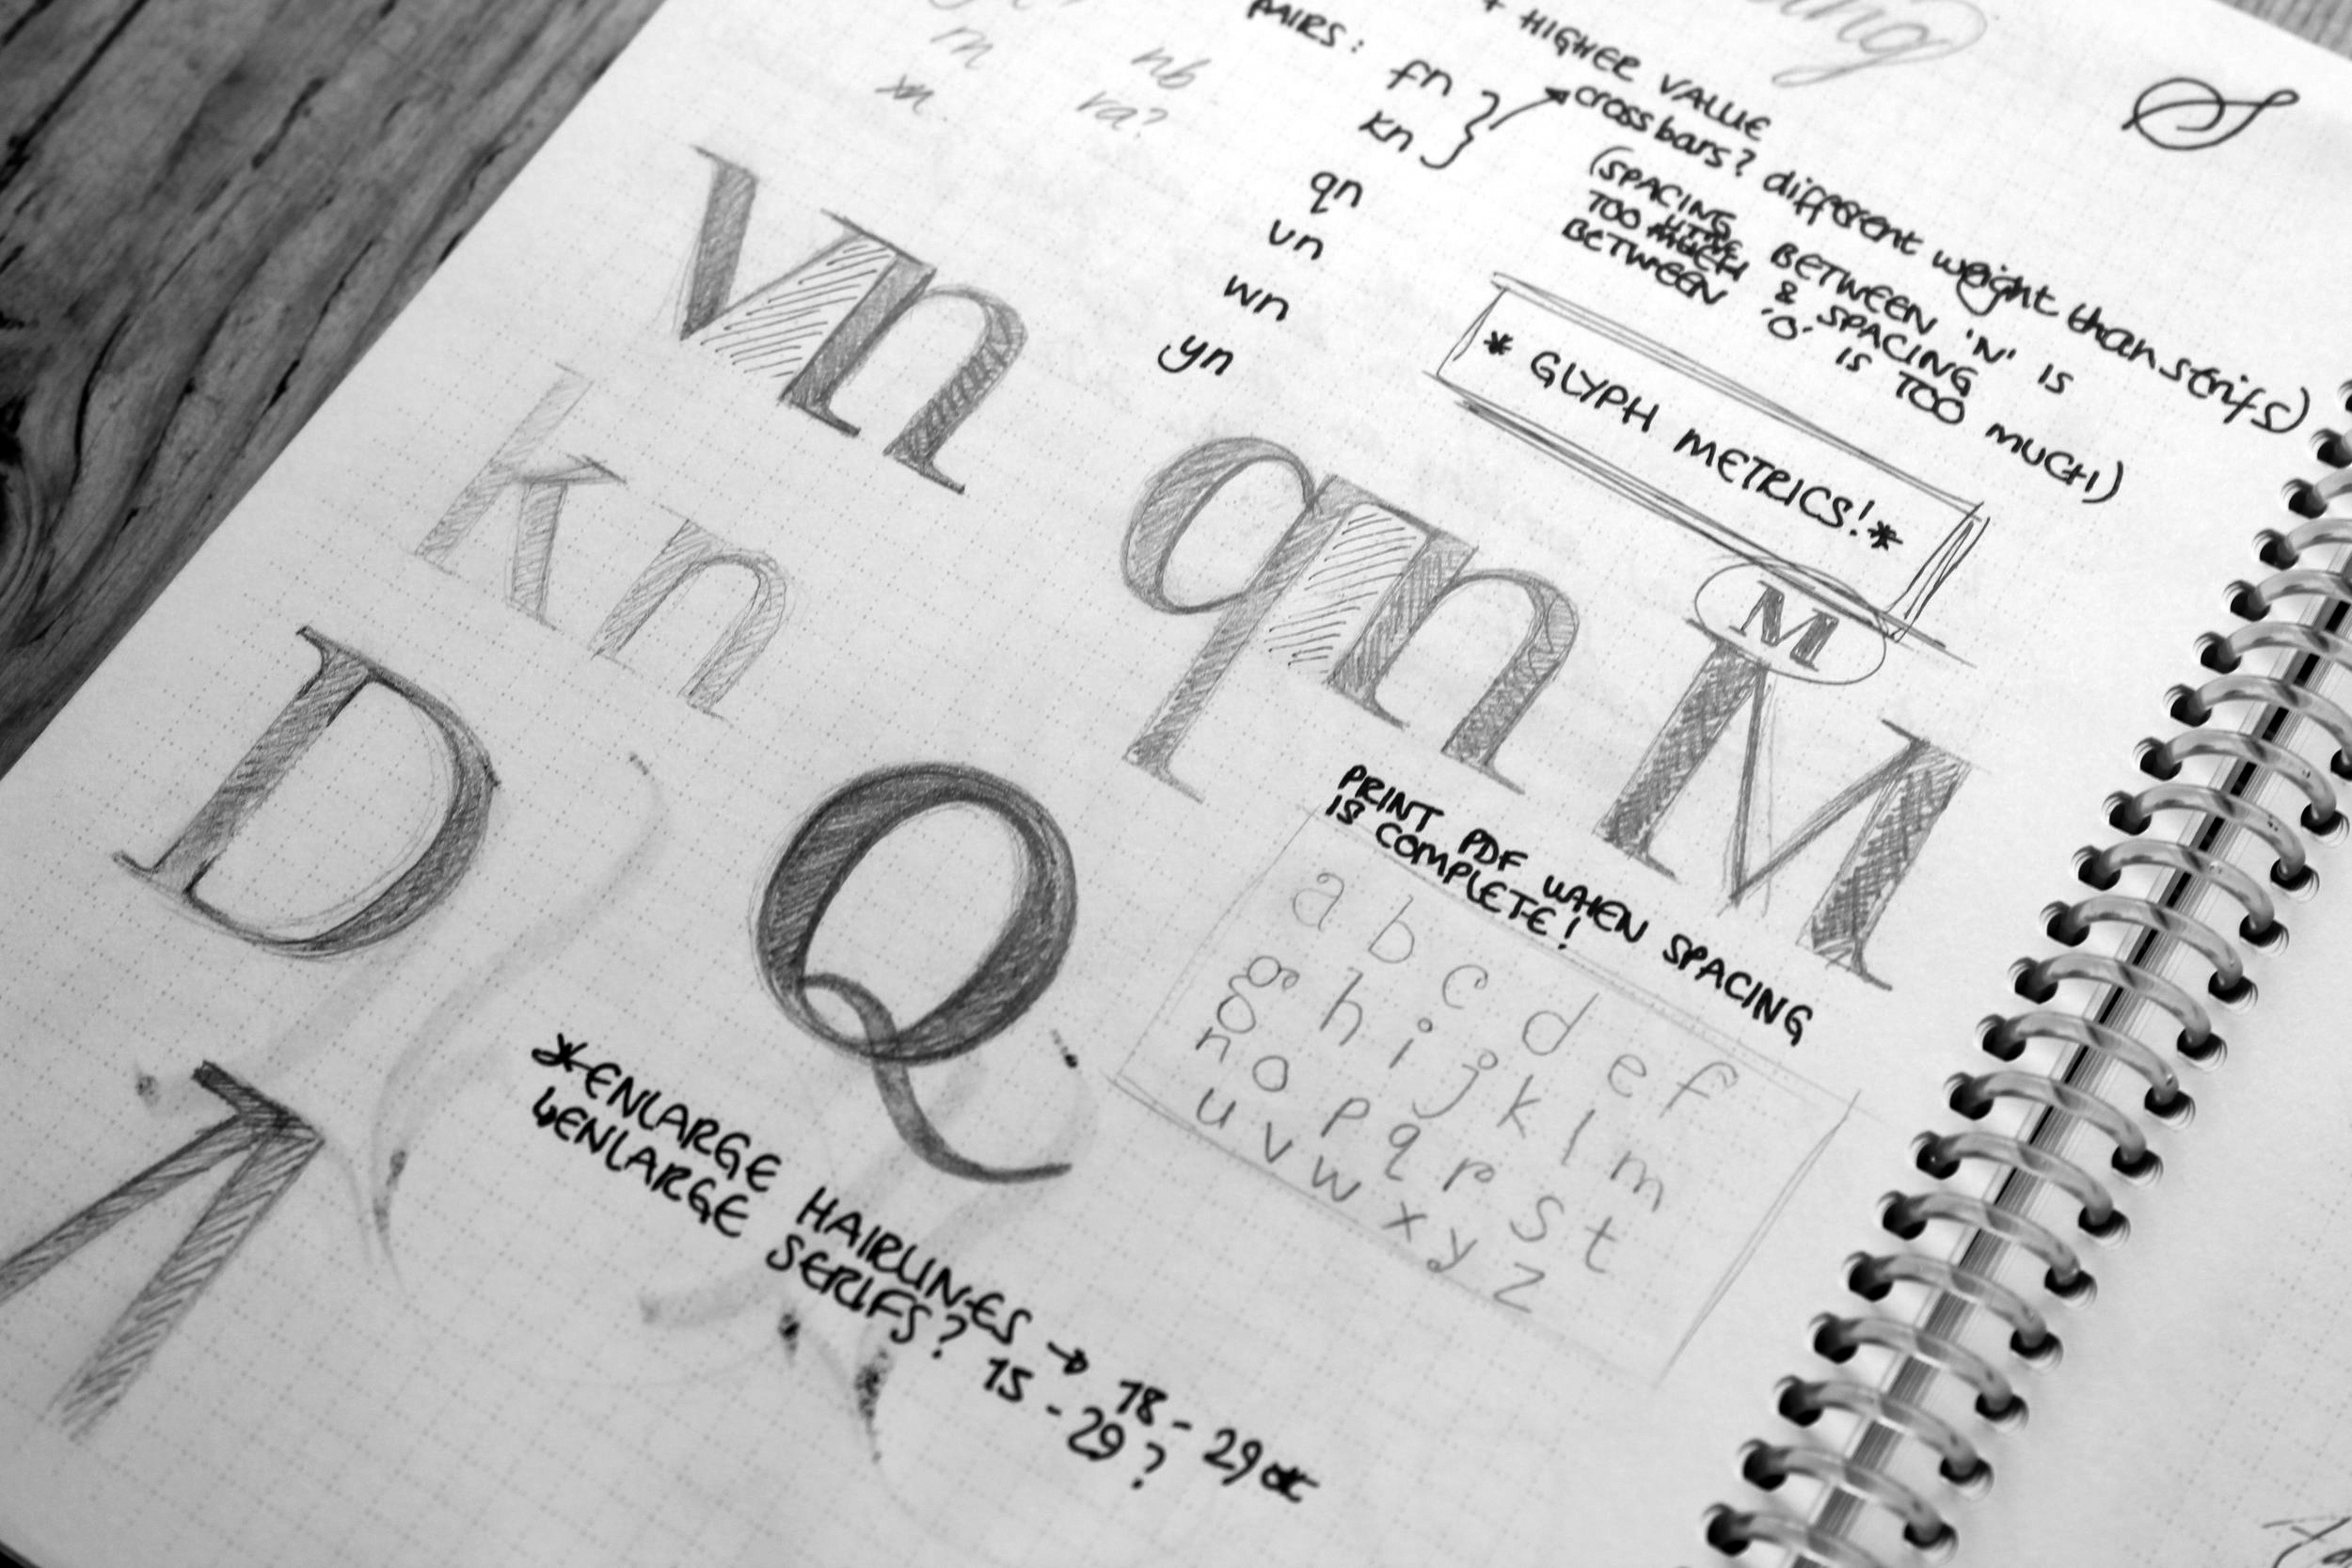 rn
xn
nb
va?
PAIRS:
fn
kn
qn
vn
wn
yn
+ HIGHER VALUE
crossbars? different weight than serifs)
(SPACING BETWEEN 'N' IS
TOO LITTLE & SPACING
BETWEEN 'O' IS TOO MUCH)
S
* GLYPH METRICS! *
vn
kn
qn
M
M
D
Q
PRINT PDF WHEN SPACING
IS COMPLETE!
a b c d e f
g h i j k l m
n o p q r s t
u v w x y z
*ENLARGE HAIRLINES → 18 - 29
↳ENLARGE SERIFS? 15 - 29?